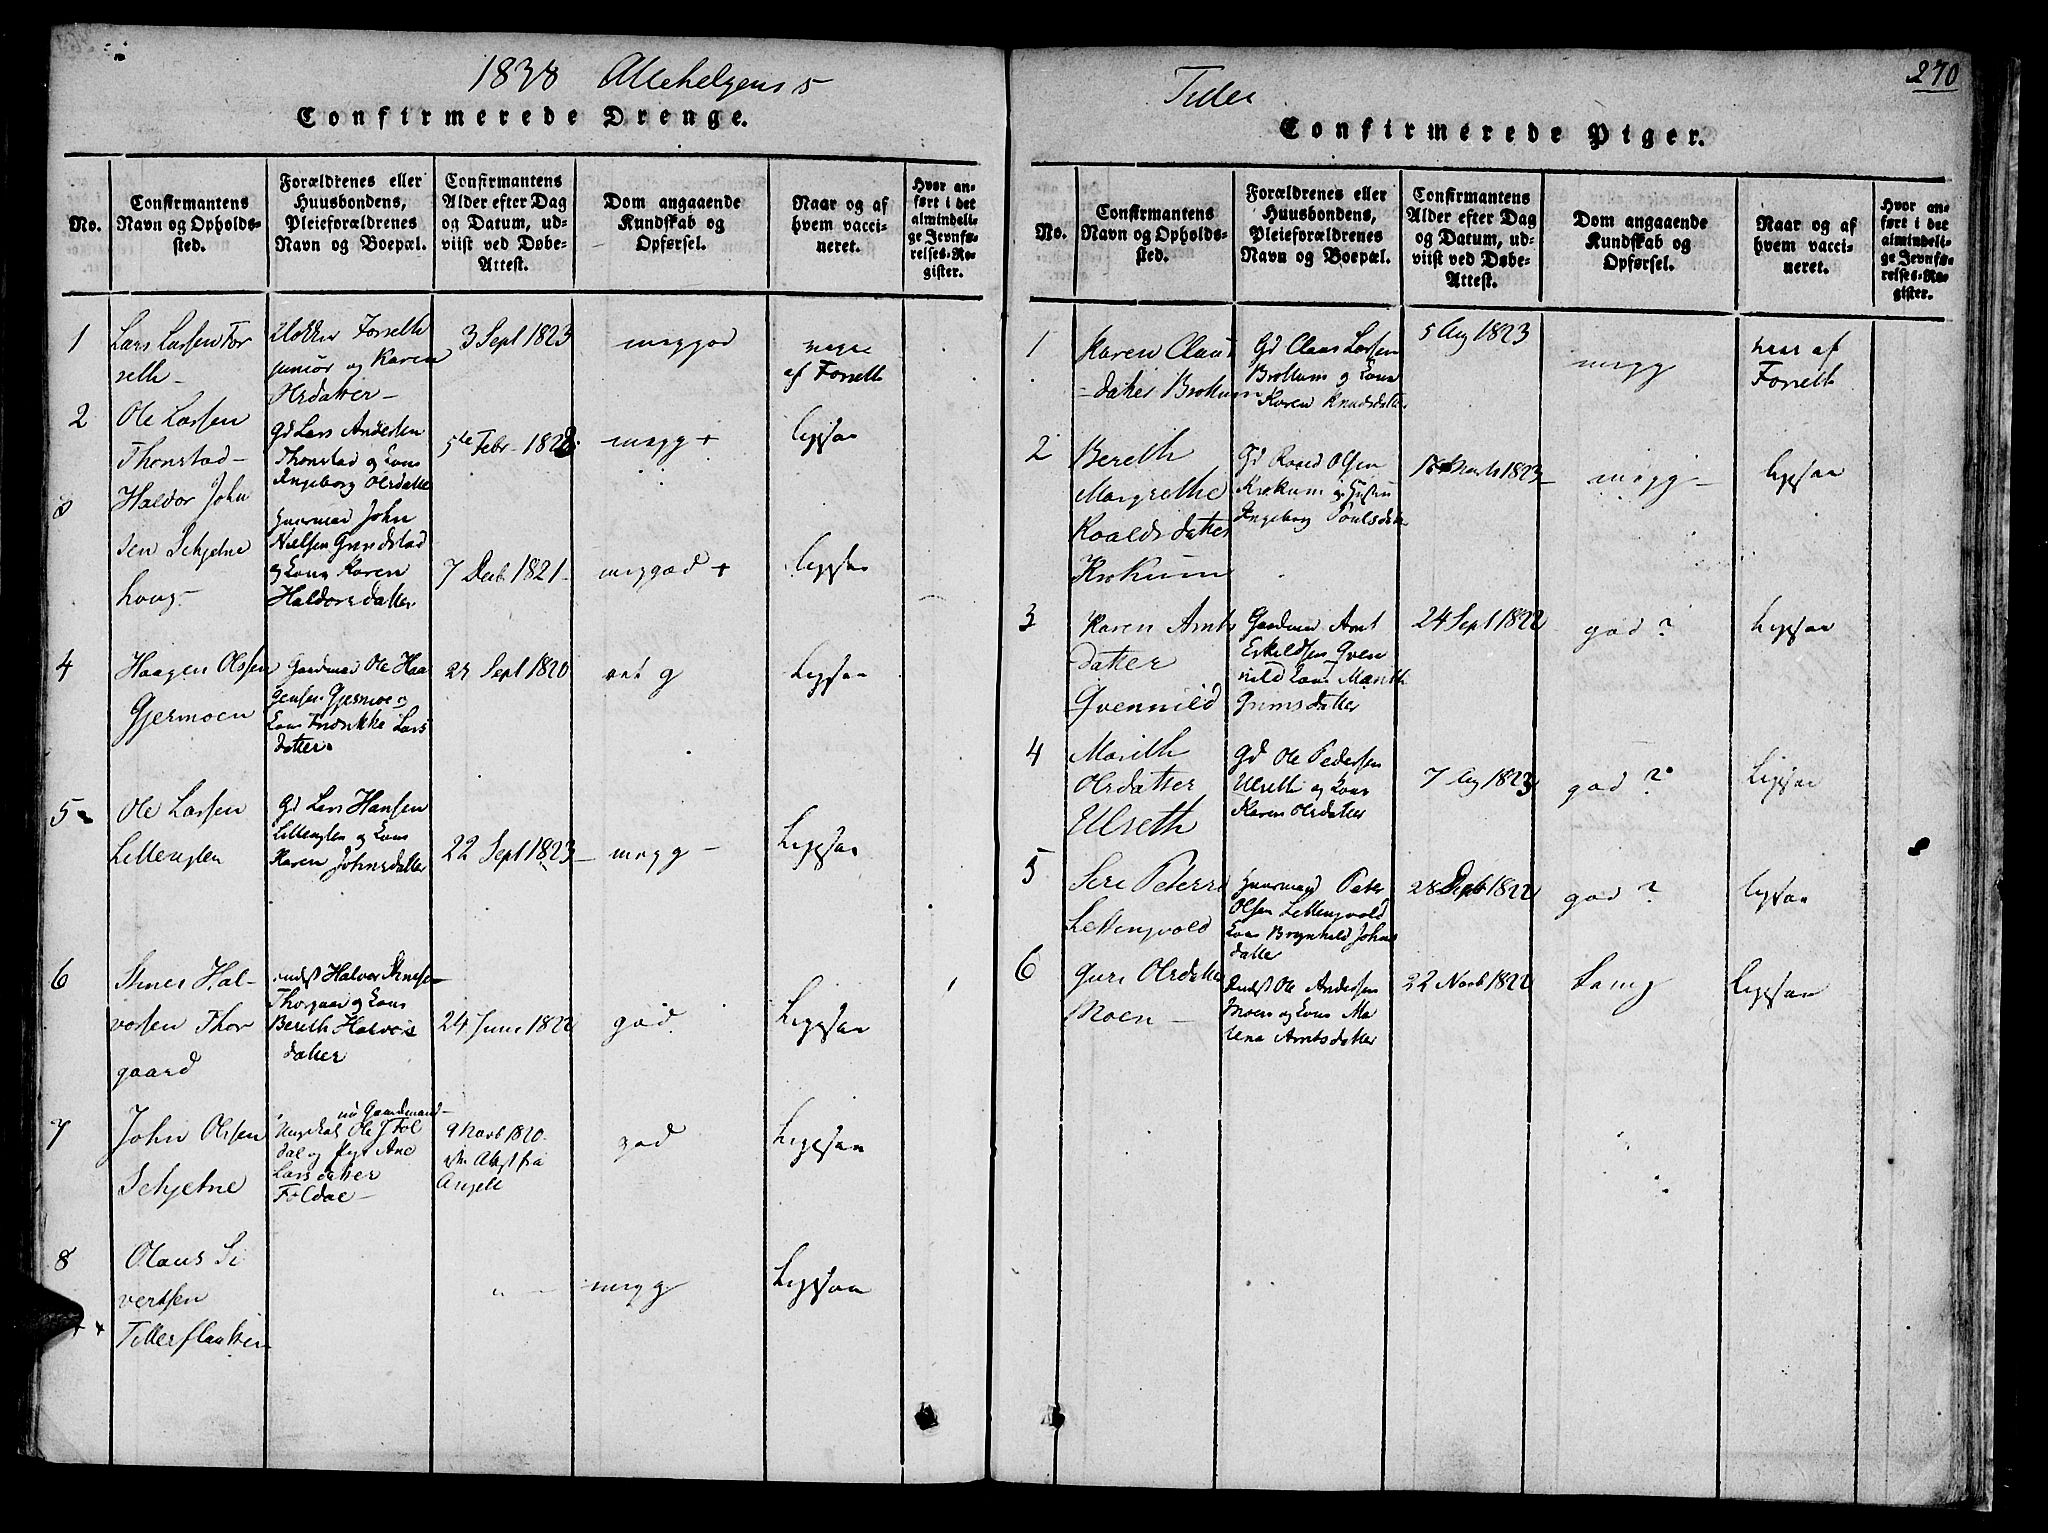 1838 Allehelgens
Confirmerede Drenge.
No.
Confirmantens
Navn og Opholds-
sted.
Forældrenes eller
Huusbondens,
Pleieforældrenes
Navn og Boepæl.
Confirmantens
Alder efter Dag
og Datum, ud-
viist ved Døbe-
Attest.
Dom angaaende
Kundskab og
Opførsel.
Naar og af
hvem vacci-
neret.
Hvor an-
ført i det
almindeli-
ge Jevnfø-
relses-Re-
gister.
1
Lars Larsen For
seth
Klokker Forseth
junior og Karen
Olsdatter
3 Sept 1823
meggod
af Forseth
2
Ole Larsen
Thonstad
Gd Lars Andersen
Thonstad og Kone
Ingeborg Olsdatter
5te Febr 1823
megg +
ligesaa
3
Haldor John
sen Schjetne
houg
Huusmand John
Nielsen Grindstad
og Kone Karen
Haldorsdatter
7 Decb 1821
meggod +
ligesaa
4
Haagen Olsen
Gjermoen
Gaardmand Ole Haa
gensen Gjermoen
Kone Fredrikke Lars
datter
Sept 1820
ret g
Ligesaa
5
Ole Larsen
Lillenglen
Gd Lars Hansen
Lillenglen og Kone
Karen Johnsdatter
22 Sept 1823
megg
Ligesaa
6
Stiner Hal-
vorsen Thor
gaard
Indst Halvor
Thorgaard og Kone
Bereth Halvors
datter
24 Juni 1822
god
Ligesaa
7
John Olssen
Schjetne
nu Gaardmand
Ungekarl Ole J Fol
dal og Pige Ane
Larsdatter
Foldal
9 Novb 1820
Attest fra
god
Ligesaa
8
Olaus Si
vertsen
Tillerflaaten
megg
Ligesaa
Tiller
270
Confirmerede Piger.
No.
Confirmantens
Navn og Opholds-
sted.
Forældrenes eller
Huusbondens,
Pleieforældrenes
Navn og Boepæl.
Confirmantens
Alder efter Dag
og Datum, ud-
viist ved Døbe-
Attest.
Dom angaaende
Kundskab og
Opførsel.
Naar og af
hvem vacci-
neret.
Hvor an-
ført i det
almindeli-
ge Jevnfø-
relses-Re-
gister.
1
Karen Claus
datter Brokum
Gd Claus Larsen
Brokum og Kone
Karen Knudsdatter
5 Aug 1823
megg
af
Forseth
2
Bereth
Margrethe
Roaldsdatter
Krokum
Gd Roald Olsen
Krokum og Hustru
Ingeborg Poulsdatter
Marts 1823
megg
Ligesaa
3
Karen Arnts
datter
Qvennild
Gaardmand Arnt
Eskildsen Qven
nild Kone Marith
Grimsdatter
24 Sept 1822
god ?
Ligesaa
4
Marith
Olsdatter
Ulseth
Gd Ole Pedersen
Ulseth og Kone
Karen Olsdatter
7 Aug 1823
god ?
Ligesaa
5
Seri Petersd
Lettingvold
Huusmand Peter
Olsen Lettingvold
Kone Brynhild Johns
datter
28 1822
god ?
Ligesaa
6
Guri Olsdatter
Moen
Indst Ole Andersen
Moen og Kone Ma
lena Arntsdatter
22 Novb 1822
Ligesaa